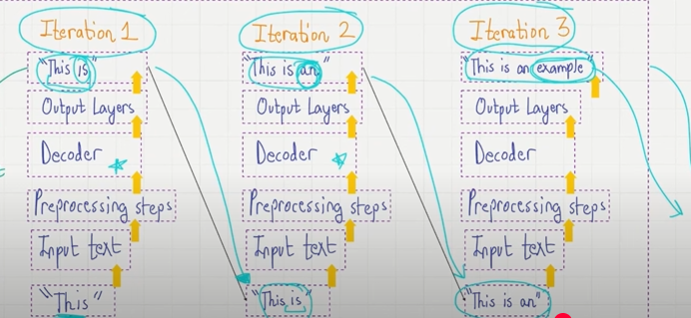 Iteration 1
"This is"
Output Layers
Decoder
Preprocessing steps
Input text
"This"
Iteration 2
"This is an"
Output Layers
Decoder
Preprocessing steps
Input text
"This is"
Iteration 3
"This is an example"
Output Layers
Decoder
Preprocessing steps
Input text
"This is an"